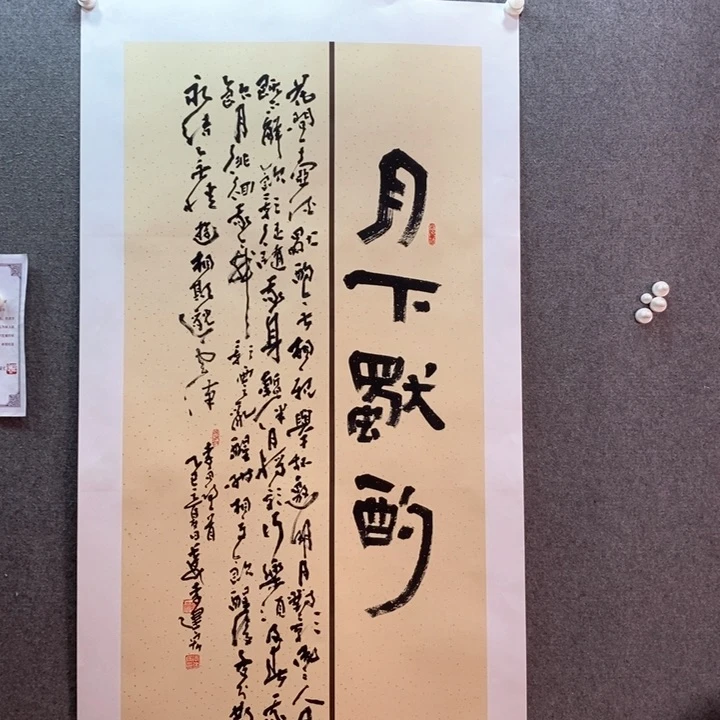 月下獨酌
花間一壺酒獨酌無相親舉杯邀明月對影成三人月
既不解飲影徒隨我身暫伴月將影行樂須及春我
歌月徘徊我舞影零亂醒時相交歡醉後各分散
永結無情遊相期邈雲漢
李白
乙巳